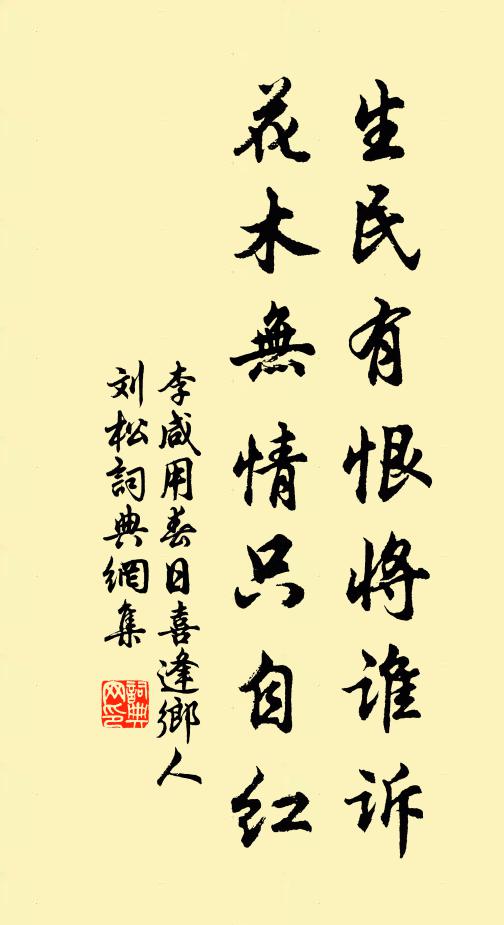 生民有恨将谁诉
花木無情只自红
李咸用春日喜逢鄉人
刘松詞典網集
詞典网印